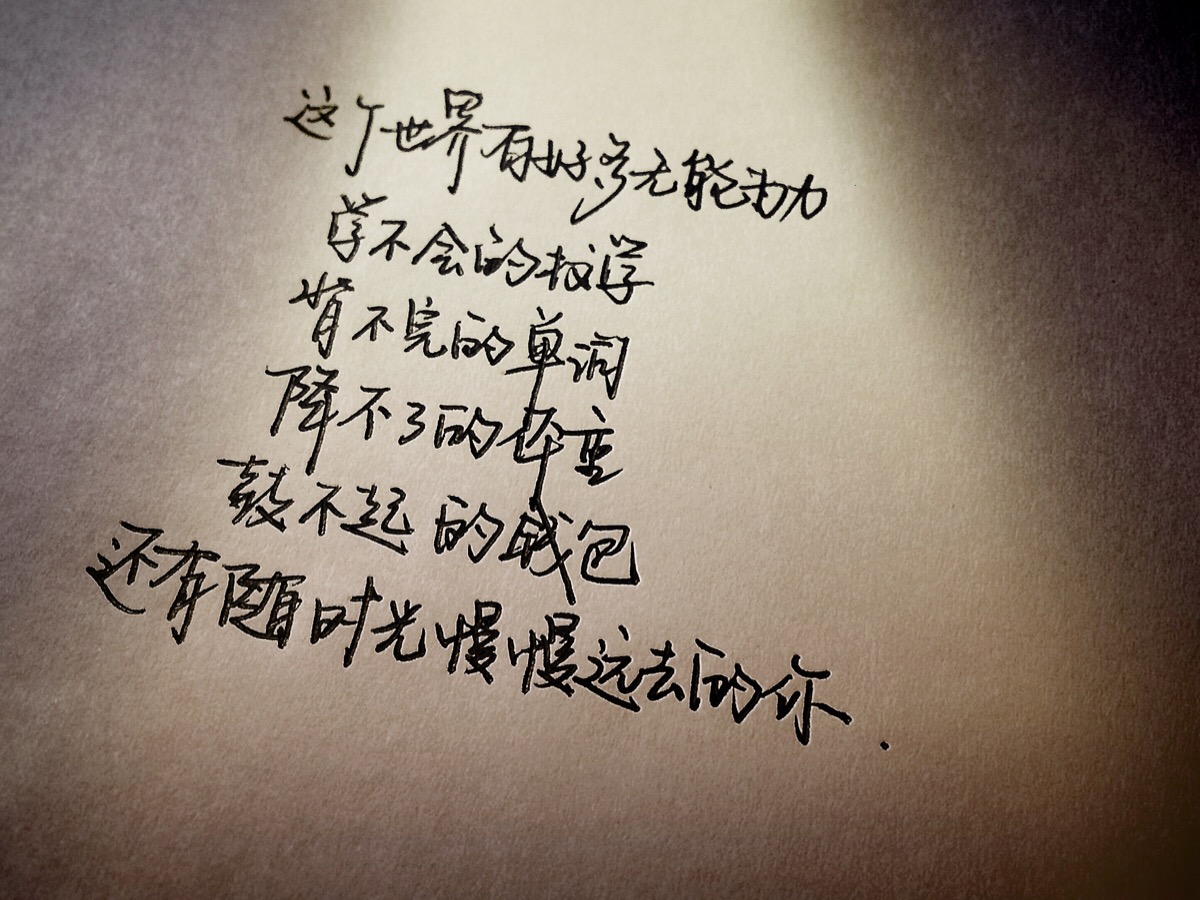 这个世界有好多无能为力
学不会的数学
背不完的单词
降不了的体重
鼓不起的钱包
还有随时光慢慢远去的你.